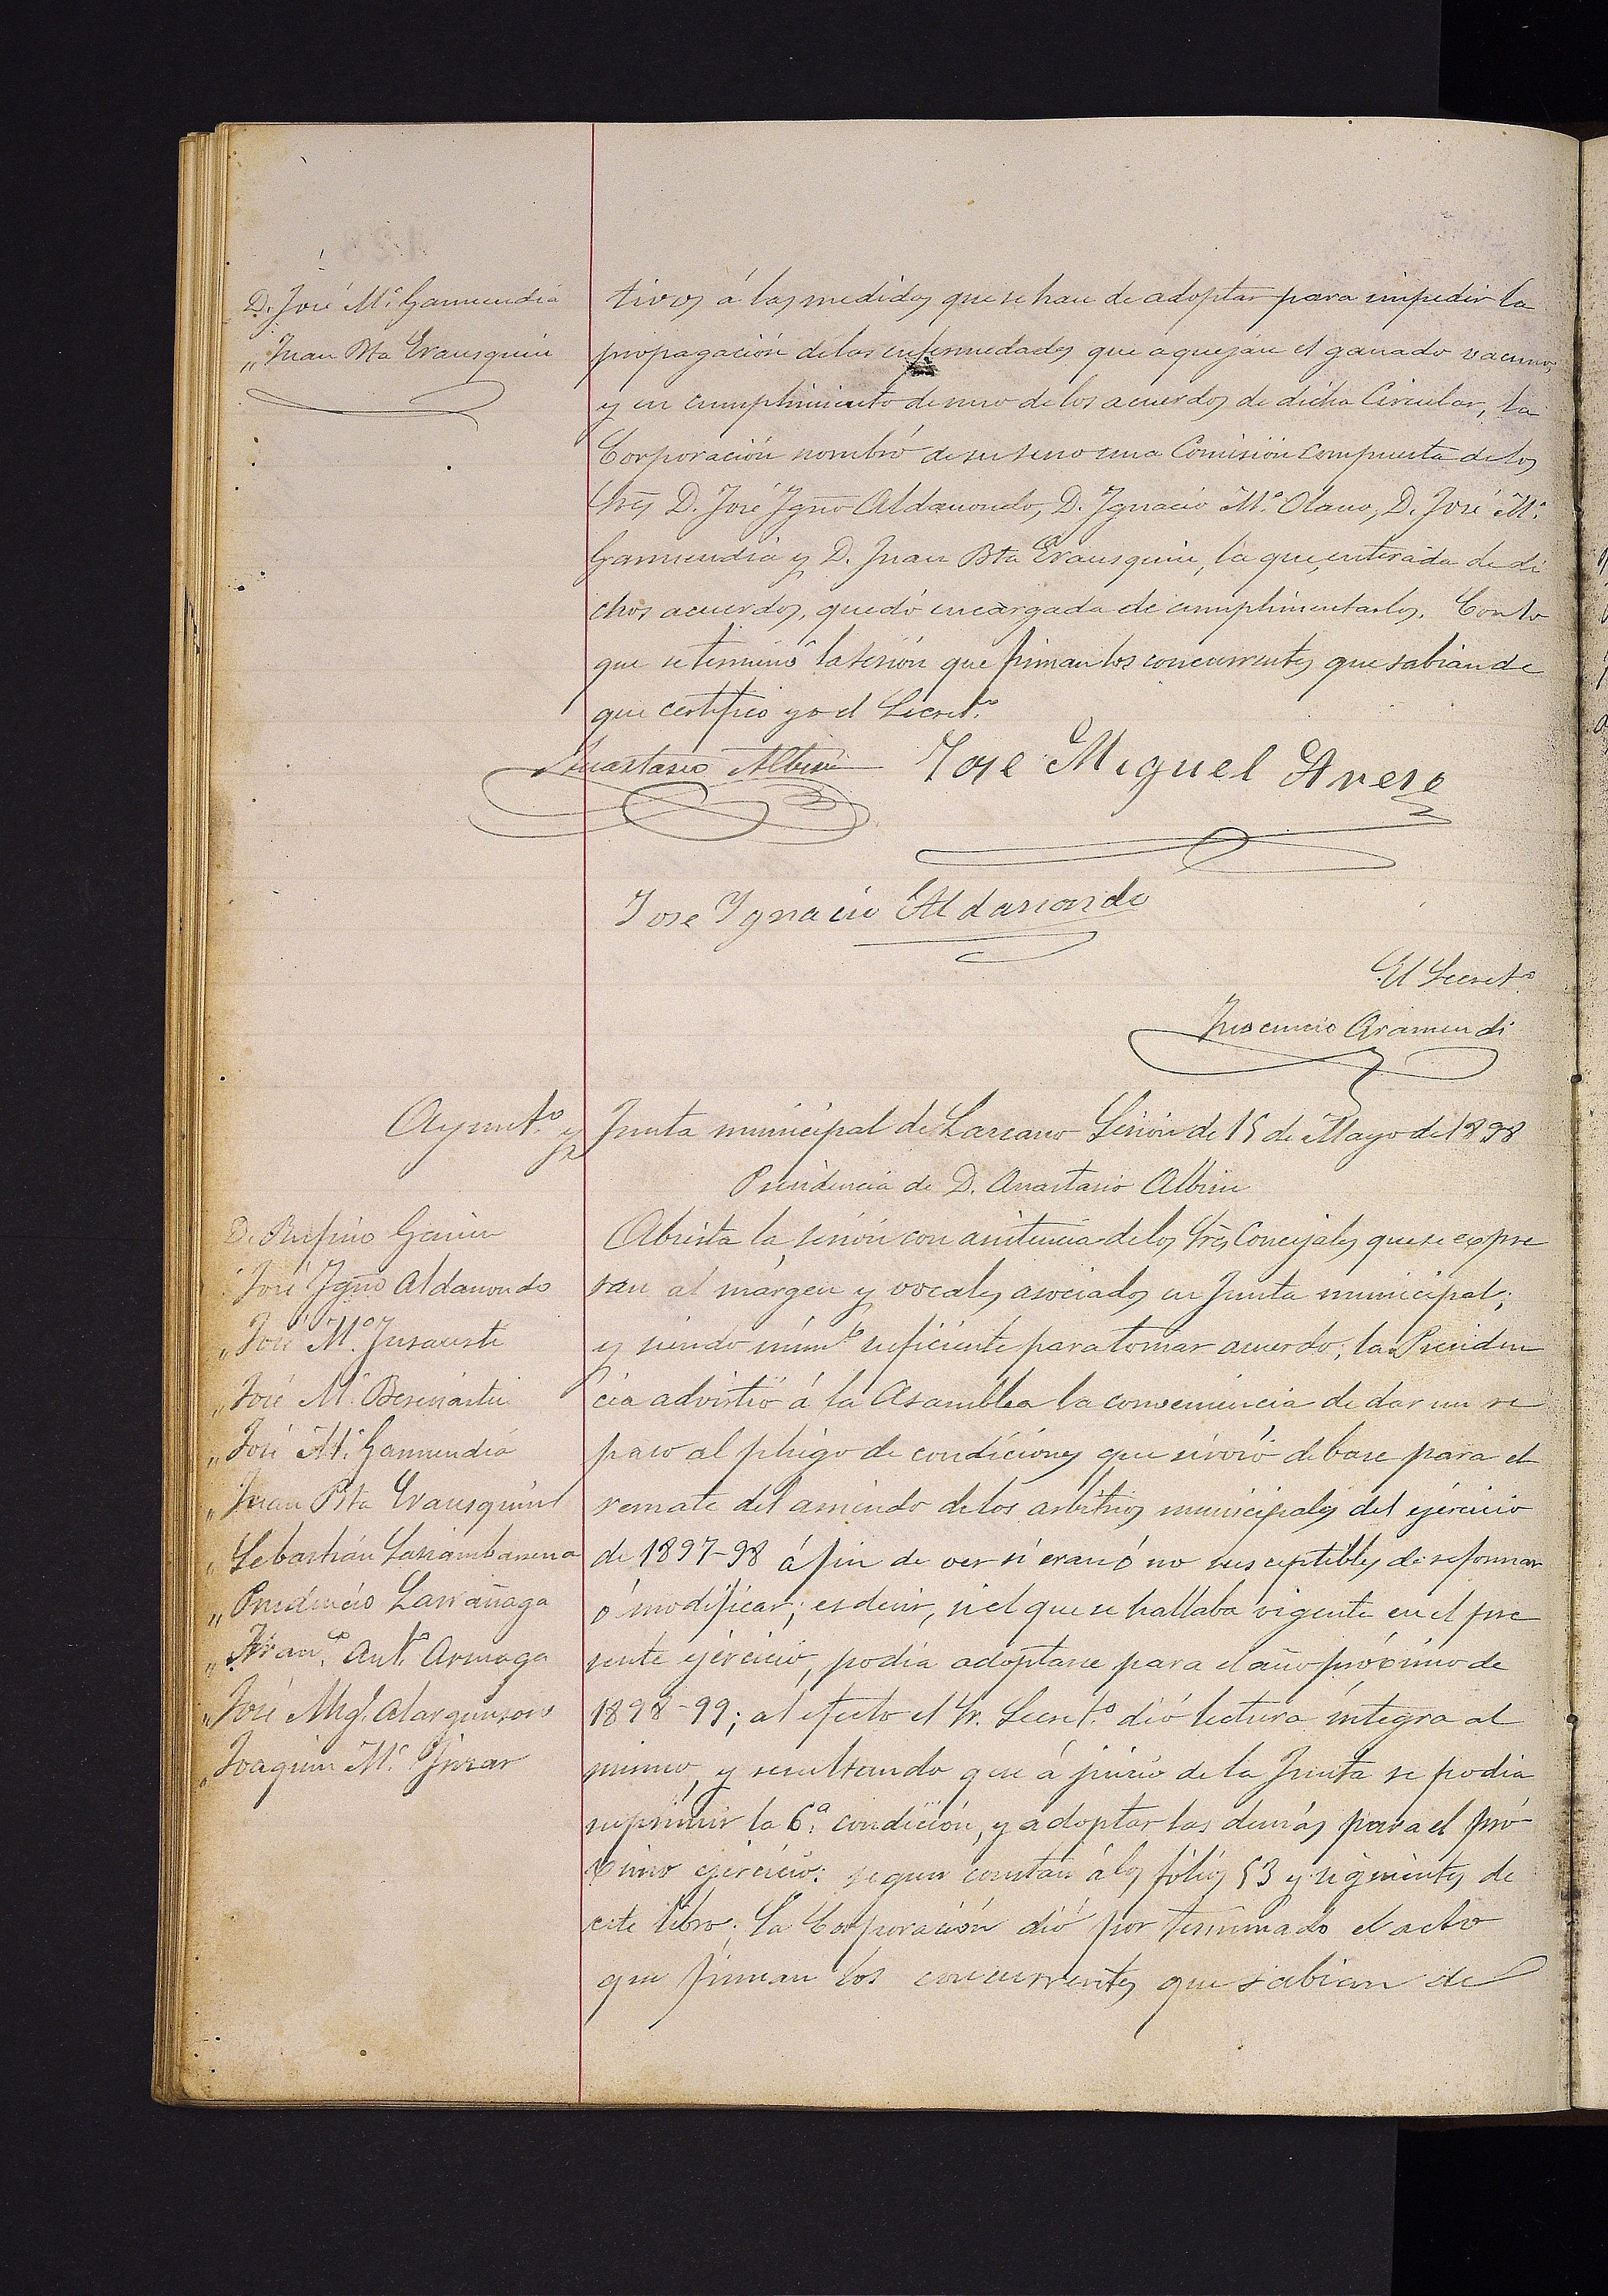 D. José M.ª Garmendia
„ Juan Bta Erausquin
tivos á las medidas que se han de adoptar para impedir la
propagación de las enfermedades que aquejan el ganado vacuno,
y en cumplimiento de uno de los acuerdos de dicha Circular, la
Corporación nombró de su seno una Comisión compuesta de los
Sres D. José Igno Aldanondo, D. Ignacio M.ª Olano, D. José M.ª
Garmendia y D. Juan Bta Erausquin, la que, enterada de di
chos acuerdos, quedó encargada de cumplimentarlos. Con lo
que se terminó la sesión que firman los concurrentes que sabian de
que certifico yo el Secret.º
Anastasio Albisu
Jose Miguel Arese
Jose Ignacio Aldanondo
El Secret.º
Inocencio Aramendi
Ayunt.º y Junta municipal de Lazcano Sesión de 15 de Mayo de 1898
Presidencia de D. Anastasio Albisu
D. Rufino Garin
„ José Igno Aldanondo
„ José M.ª Insausti
„ José M.ª Beseriartui
„ José M.ª Garmendia
„ Juan Bta Erausquin
„ Sebastián Sasiambarrena
„ Prudencio Larrañaga
„ Fran.co Ant.º Arruaga
„ José Mig.l Alarguinzoro
„ Joaquin M.ª
Abierta la sesión con asistencia de los Sres Concejales que se expre
san al márgen y vocales asociados en Junta municipal;
y siendo núm.º suficiente para tomar acuerdo, la Presiden
cia advirtió á la Asamblea la conveniencia de dar un re
paso al pliego de condiciones que sirvió de base para el
remate del arriendo de los arbitrios municipales del ejercicio
de 1897-98 á fin de ver si eran ó no susceptibles de reformar
ó modificar; es decir, si el que se hallaba vigente en el pre
sente ejercicio, podia adoptarse para el año próximo de
1898-99; al efecto el Sr. Secret.º dió lectura íntegra al
mismo, y resultando que á juicio de la Junta se podia
suprimir la 6.ª condición, y adoptar las demás para el pró-
ximo ejercicio: segun constan á los fólios 53 y siguientes de
este libro; la Corporación dió por terminado el acto
que firman los concurrentes que sabian de